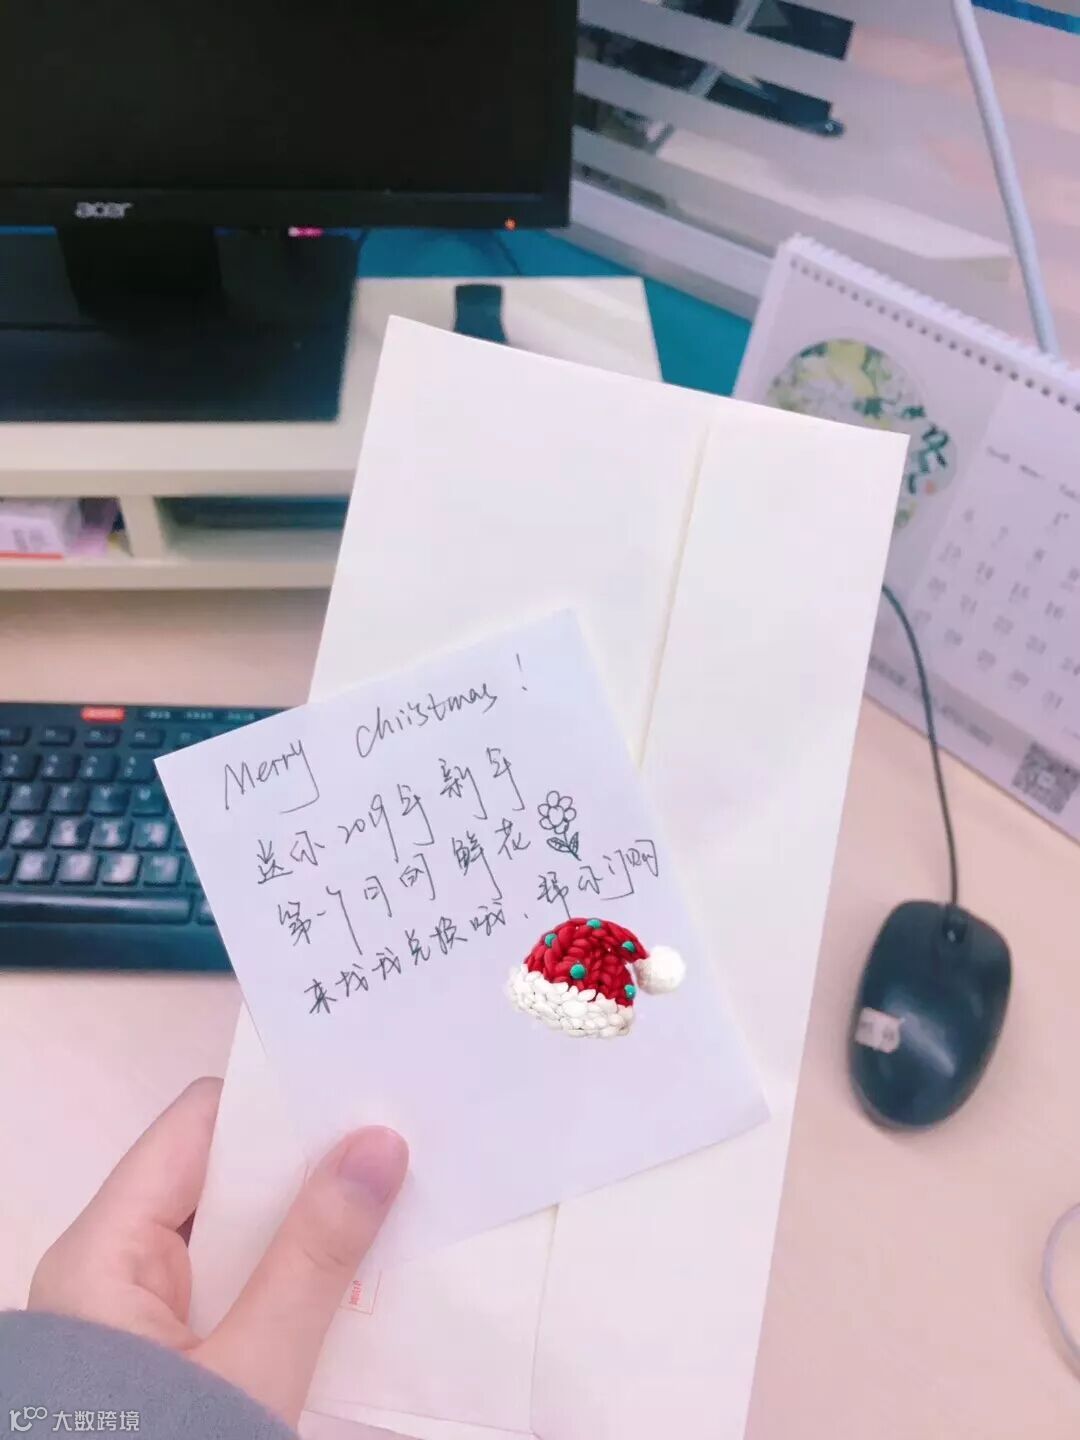 acer
Merry Christmas!
送你2019年新年
第一个月的鲜花
来找我兑换哦,帮你订购
冬
大数跨境